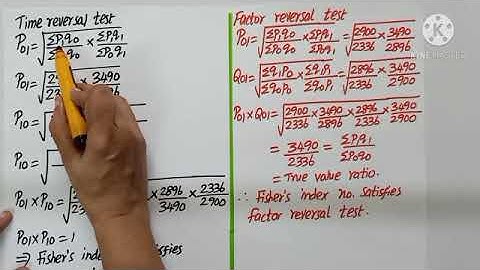 Time reversal test
P01 = √ΣP1q0 × ΣP1q1
ΣP0q1
P01 = √ × 3490
2336
P10 = √
P10 = √
P01 × P10 = √ × 2896 × 2336
3490 2900
P01 × P10 = 1
⇒ Fisher's index satisfies
Factor reversal test
P01 = √ΣP1q0/ΣP0q0 × ΣP1q1/ΣP0q1 = √2900/2336 × 3490/2896
Q01 = √Σq1P0/Σq0P0 × Σq1P1/Σq0P1 = √2896/2336 × 3490/2900
P01 × Q01 = √2900/2336 × 3490/2896 × 2896/2336 × 3490/2900
= 3490/2336 = ΣP1q1/ΣP0q0
= True value ratio.
∴ Fisher's index no. satisfies
Factor reversal test.
KINEMASTER